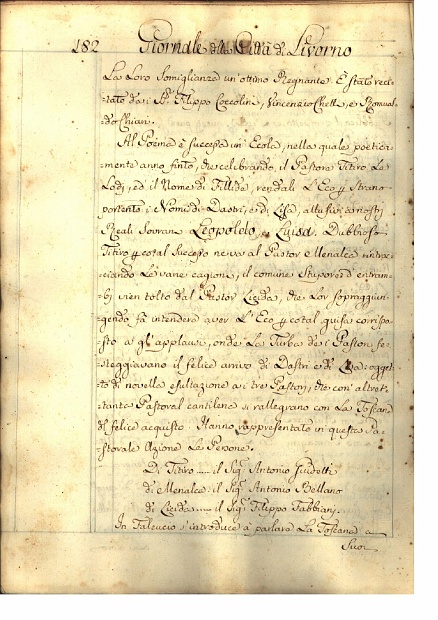 182 Giornale della Città di Livorno
La Loro Somiglianza un ottimo Regnante. È stato reci-
-tato dai SS.ri Filippo Coccolini, Vincenzio Chelli, e Romual-
-do Chiari.
Al Poema è succeduta un' Ecloga, nella quale poetica-
mente anno finto, che celebrando, il Pastore Titiro Le
Lodi, ed il Nome di Fillide, rendali L'Eco per strano
portento i Nomi di Dastri, e di Lisa, allusivi a nostri
Reali Sovrani Leopoldo, e Luisa. Dubbioso
Titiro per cotal Successo ne va al Pastor Menalca rintrac-
ciando Le vane cagioni, il comune Stupore d'entram-
bi vien tolto dal Pastor Licida, che Lor sopraggiun-
gendo fa intendere aver L'Eco per cotal guisa corrispo-
sto a gl'applausi, onde La Turba dei Pastori fe-
steggiavano il felice arrivo di Dastri e di Lisa; ogget-
to di novella esultazione ai tre Pastori, che con' altret-
tanta Pastoral cantilena si rallegrano con La Toscana
del felice acquisto. Hanno rappresentato in questa Pa-
storale Azione Le Persone.
Di Titiro ..... il Sig.r Antonio Guidetti
di Menalca il Sig.r Antonio Bellano
di Licida ..... il Sig.r Filippo Fabbiani.
In s'introduce a parlare La Toscana a
Suoi